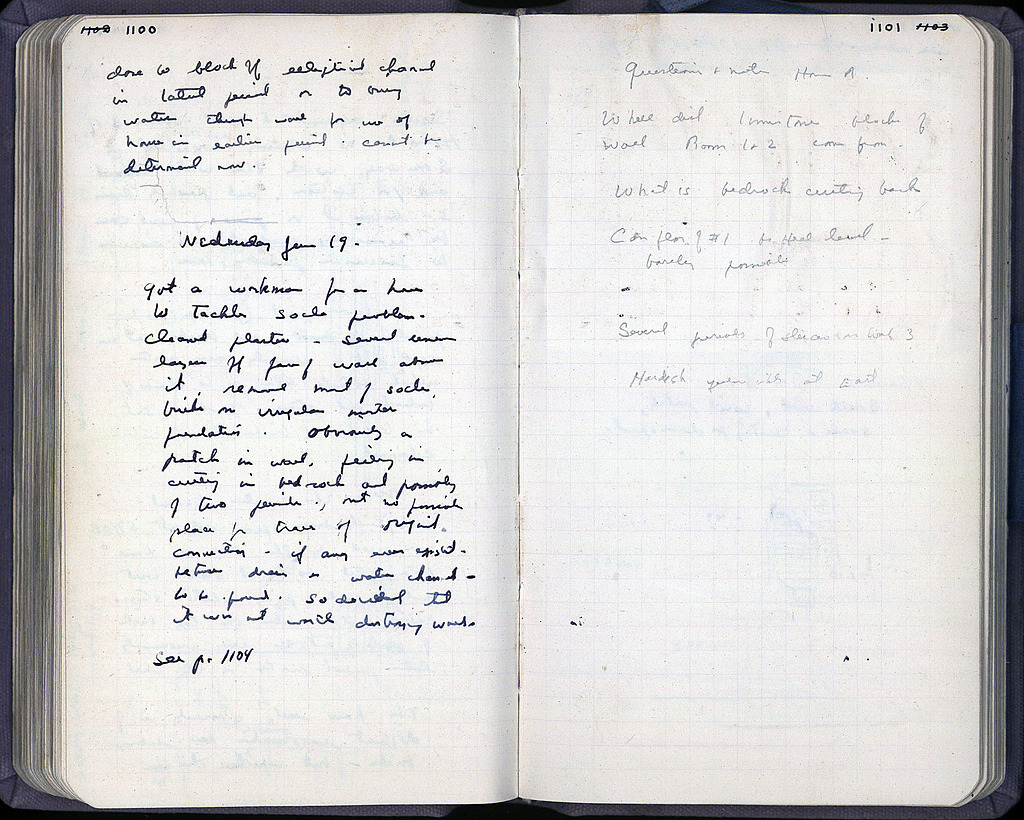 1102 1100
done to block off elliptical channel
in latest period or to bring
water through wall for use of
house in earlier period. cannot be
determined now.
Wednesday June 19.
got a workman for an hour
to tackle socle problem.
cleaned plaster - several
layers off face of wall above
it, removed most of socle,
bricks on irregular mortar
foundation. Obviously a
patch in wall, filling in
cutting in bedrock and possibly
of two periods, but no possible
place for trace of original
connection - if any ever existed -
between drain & water channel -
to be found. So decided that
it was not worth destroying wall.
See p. 1104
1101 1103
Questions & notes House A.
Where did limestone blocks of
wall Room 1 & 2 come from.
What is bedrock cutting back
Can floor of #1 to level -
barely possible
"
Several periods of 3
at East